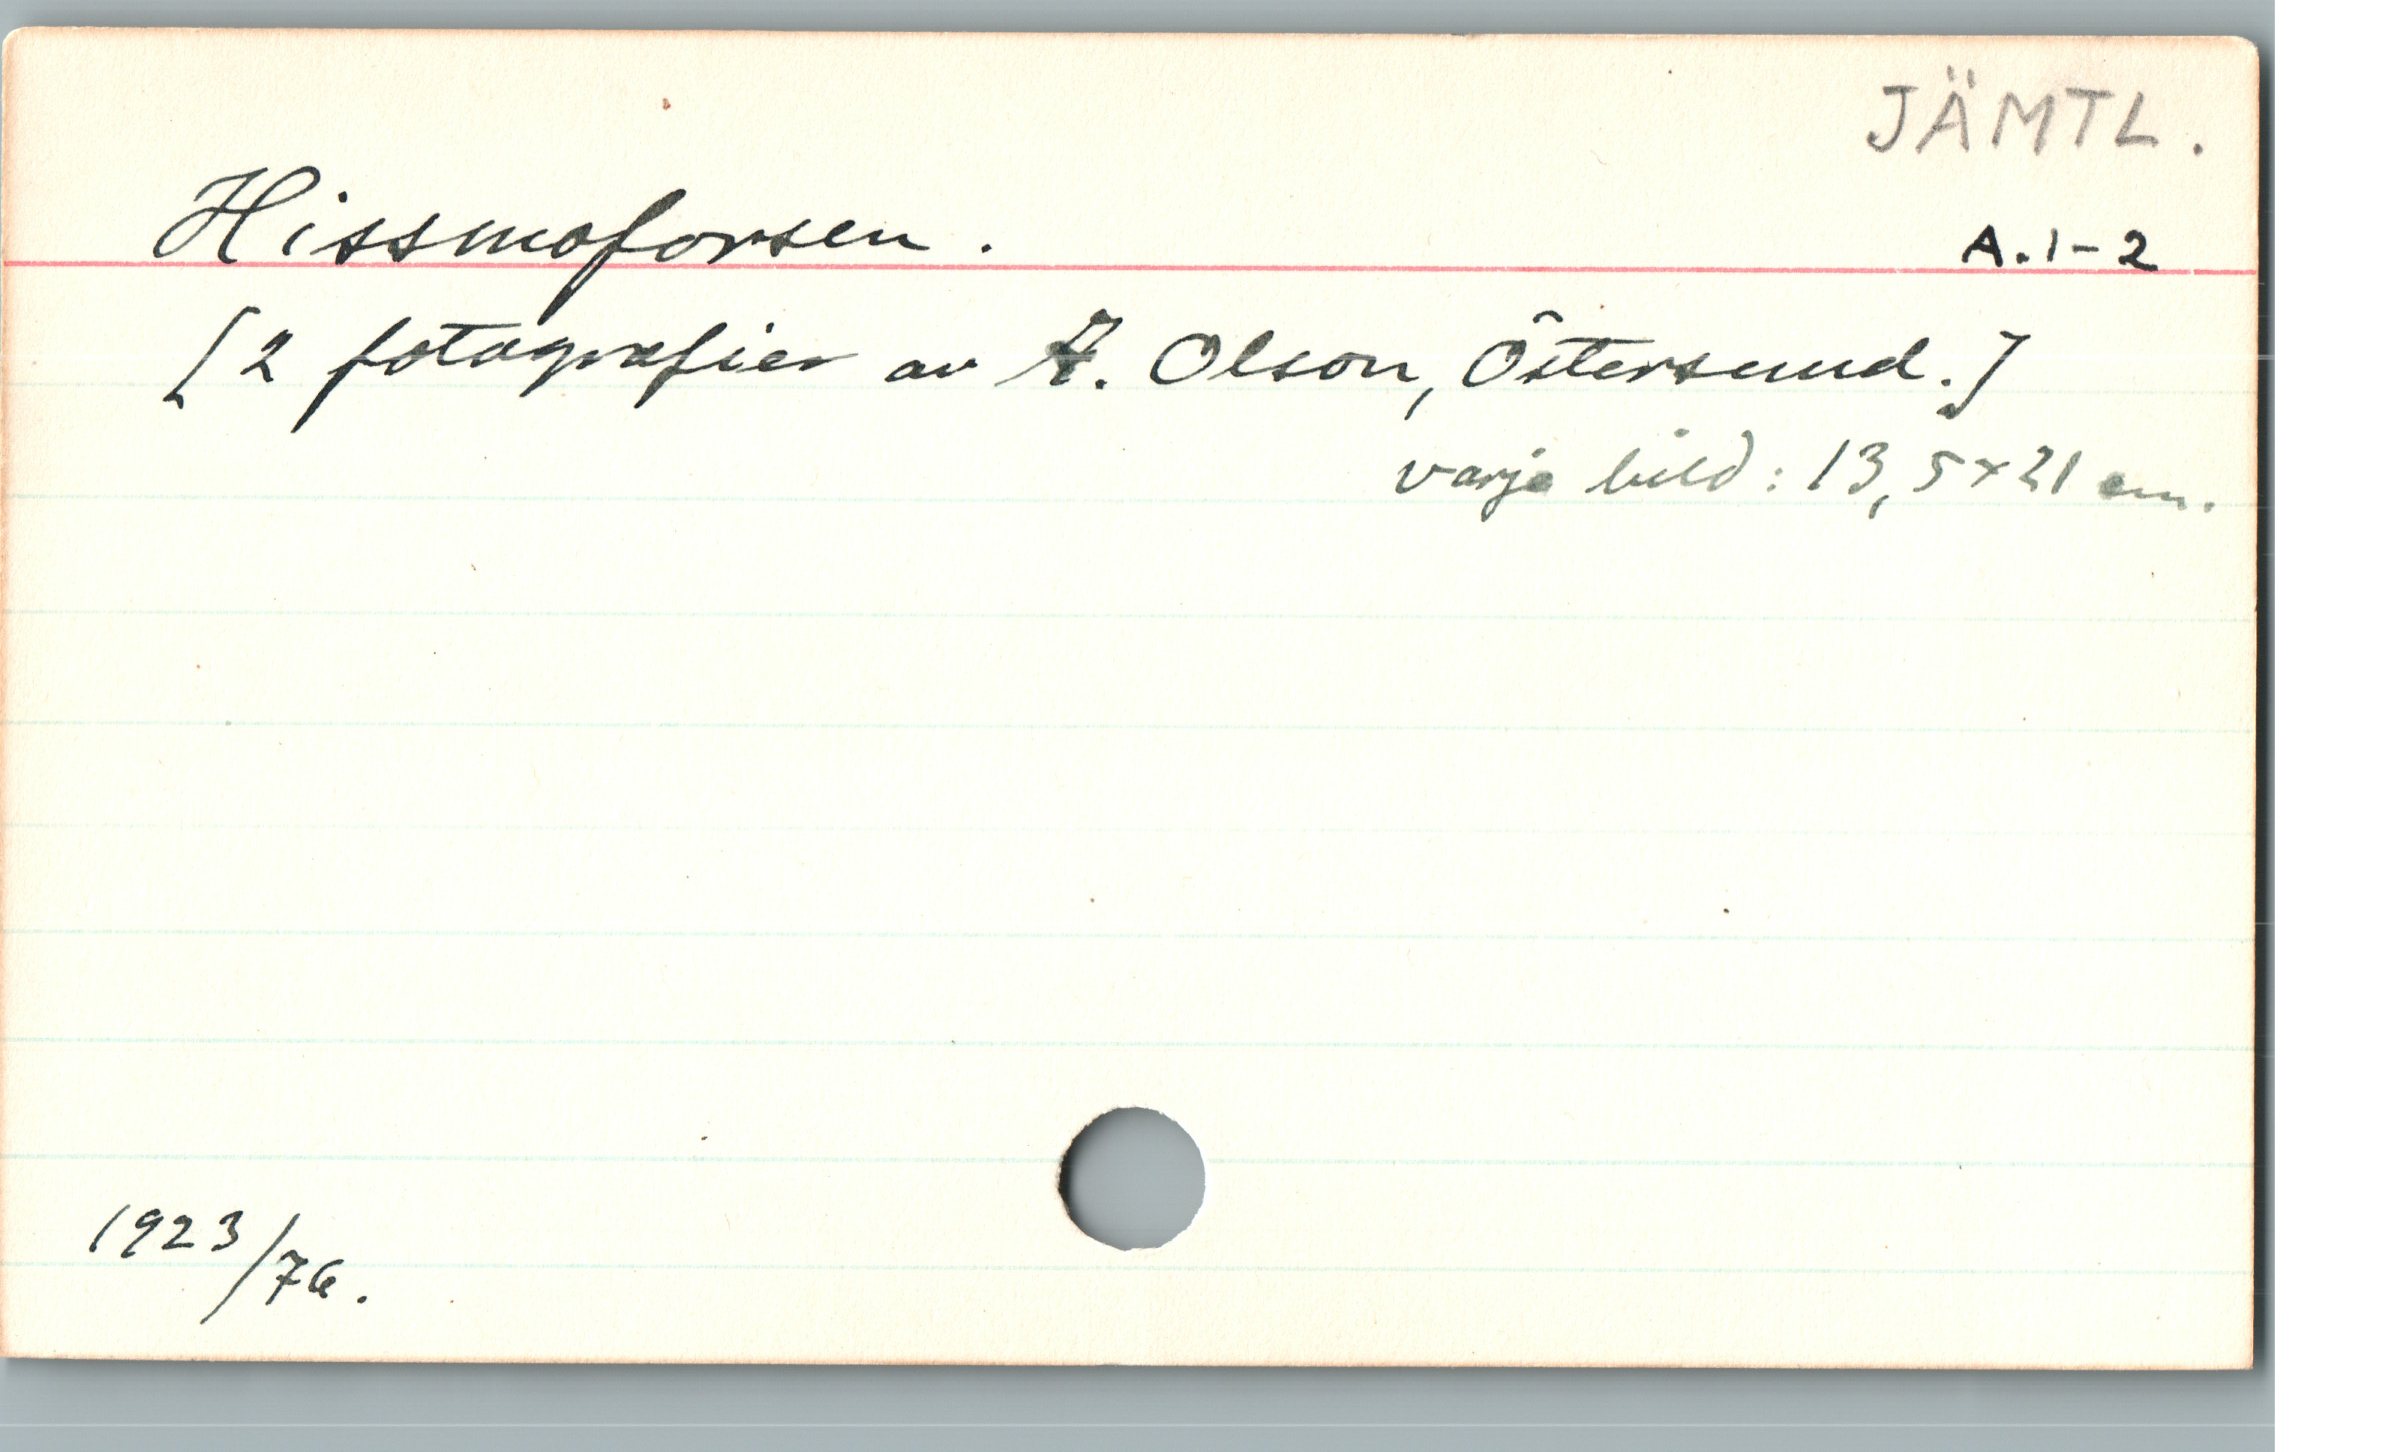 JÄMTL.
Hissmoforsen.
A. 1-2
[2 fotografier av . Olson, Östersund.]
varje bild: 13,5 x 21 cm.
1923/76.